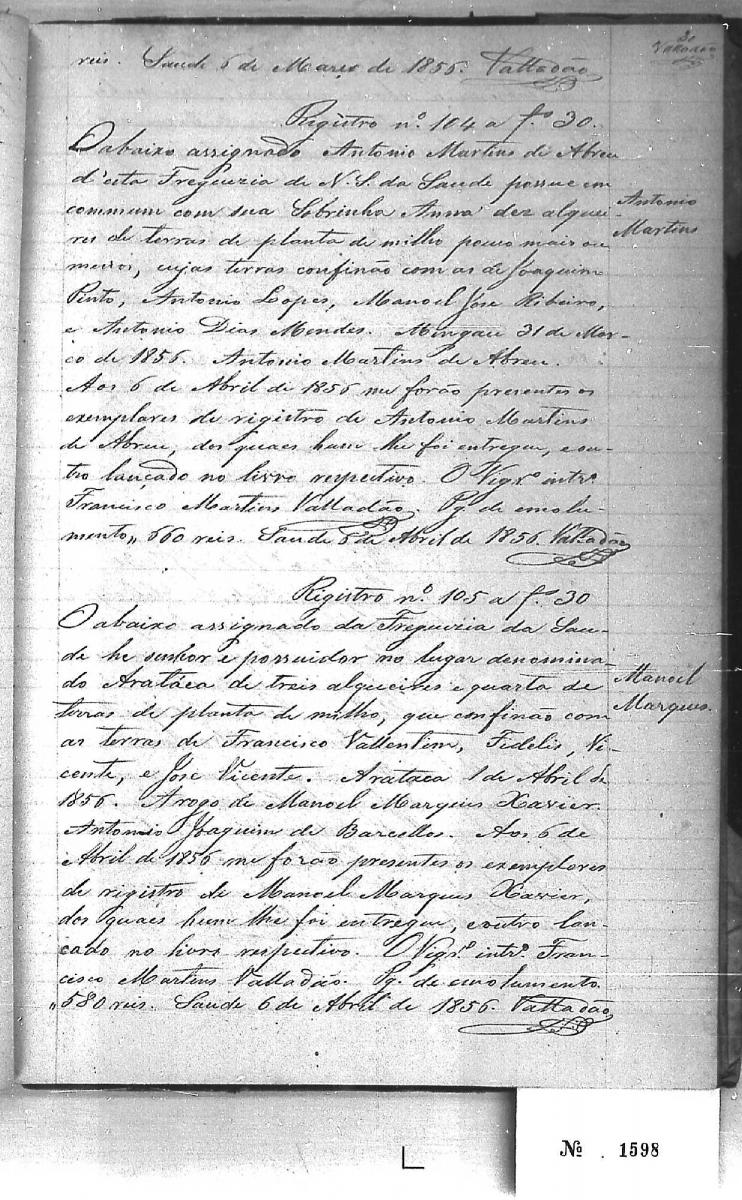 30
Valladão
reis. Saude 6 de Março de 1856. Valladão
Registro nº. 104 a fº. 30.
O abaixo assignado Antonio Martins de Abreu
d'esta Freguezia de N. S. da Saude possue em
commum com sua Sobrinha Anna dez alquei-
res de terras de planta de milho pouco mais ou
menos, cujas terras confinão com as de Joaquim
Pinto, Antonio Lopes, Manoel Jose Ribeiro,
e Antonio Dias Mendes. Mingau 31 de Mar-
ço de 1856. Antonio Martins de Abreu.
Aos 6 de Abril de 1856 me forão presentes os
exemplares de registro de Antonio Martins
de Abreu, dos quaes hum lhe foi entregue, e ou-
tro lançado no livro respectivo. O Vigrº. intrº.
Francisco Martins Valladão. Pg. de emolu-
mento „ 660 reis. Saude 6 de Abril de 1856. Valladão
Antonio
Martins
Registro nº. 105 a fº. 30
O abaixo assignado da Freguezia da Sau-
de he senhor e possuidor no lugar denomina-
do Aratáca de trais alqueires e quarta de
terras de planta de milho, que confinão com
as terras de Francisco Vallentim, Fidelis, Vi-
cente, e Jose Vicente. Arataca 1 de Abril de
1856. Arogo de Manoel Marques Xavier.
Antonio Joaquim de Barcellos. Aos 6 de
Abril de 1856 me forão presentes os exemplares
de registro de Manoel Marques Xavier,
dos quaes hum lhe foi entregue, e outro lan-
çado no livro respectivo. O Vigrº. intrº. Fran-
cisco Martins Valladão. Pg. de emolumento
„ 580 reis. Saude 6 de Abril de 1856. Valladão
Manoel
Marques.
Nº . 1598